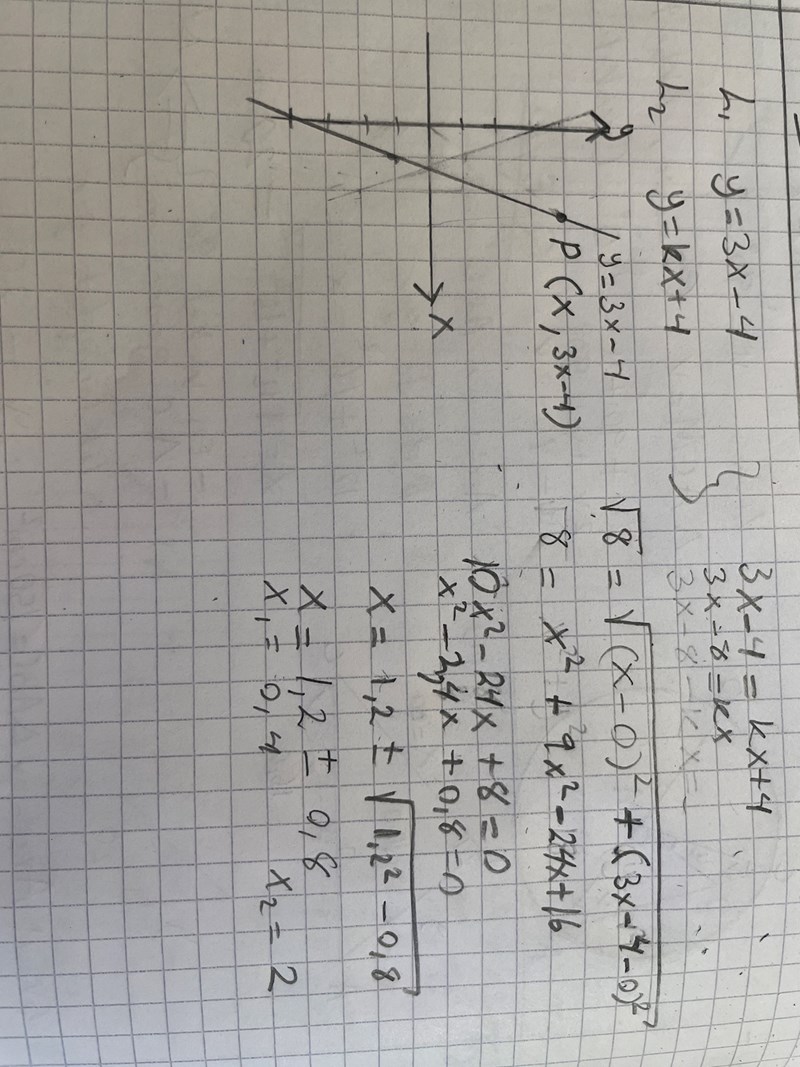 L₁ y = 3x - 4
L₂ y = kx + 4
3x - 4 = kx + 4
3x - 8 = kx
3x - 8 - kx =
y
y = 3x - 4
P (x, 3x-4)
x
√8 = √((x-0)² + (3x-4-0)²)
8 = x² + 9x² - 24x + 16
10x² - 24x + 8 = 0
x² - 2,4x + 0,8 = 0
x = 1,2 ± √(1,2² - 0,8)
x = 1,2 ± 0,8
x₁ = 0,4 x₂ = 2